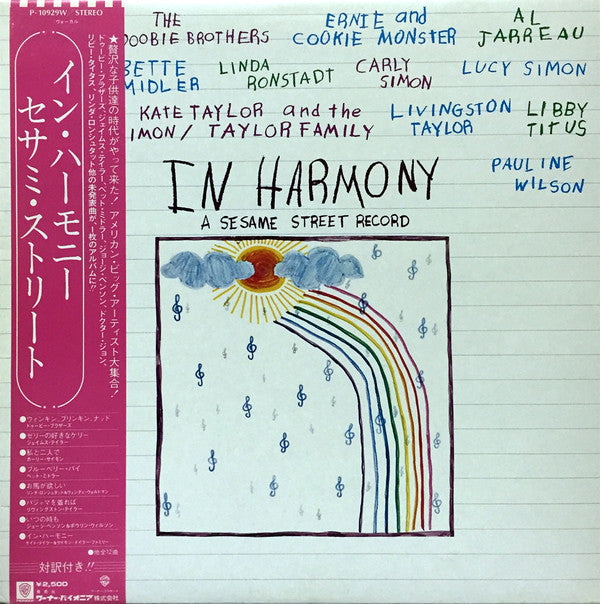 P-10929W STEREO
ヴォーカル
★贅沢な子供達の時代がやって来た! アメリカン・ビッグ・アーティスト大集合!
ドゥービー・ブラザーズ、ジェイムス・テイラー、ベット・ミドラー、ジョージ・ベンソン、ドクター・ジョン、
リビー・タイタス、リンダ・ロンシュタット他の未発表曲が、1枚のアルバムに!!
イン・ハーモニー
セサミ・ストリート
●ウィンキン、ブリンキン、ナッド
ドゥービー・ブラザーズ
●ゼリーの好きなケリー
ジェイムス・テイラー
●私と二人で
カーリー・サイモン
●ブルーベリー・パイ
ベット・ミドラー
●お馬が欲しい
リンダ・ロンシュタット&ウェンディ・ウォルドマン
●パジャマを着れば
リヴィングストン・テイラー
●いつの時も
ジョージ・ベンソン&ポウリン・ウィルソン
●イン・ハーモニー
ケイト・テイラー&サイモン・テイラー・ファミリー
●他全12曲
対訳付き!!
¥2,500
発売元
ワーナー・パイオニア株式会社
THE
DOOBIE BROTHERS
ERNIE and
COOKIE MONSTER
AL
JARREAU
BETTE
MIDLER
LINDA
RONSTADT
CARLY
SIMON
LUCY SIMON
KATE TAYLOR and the
IMON/ TAYLOR FAMILY
LIVINGSTON
TAYLOR
LIBBY
TITUS
PAULINE
WILSON
IN HARMONY
A SESAME STREET RECORD